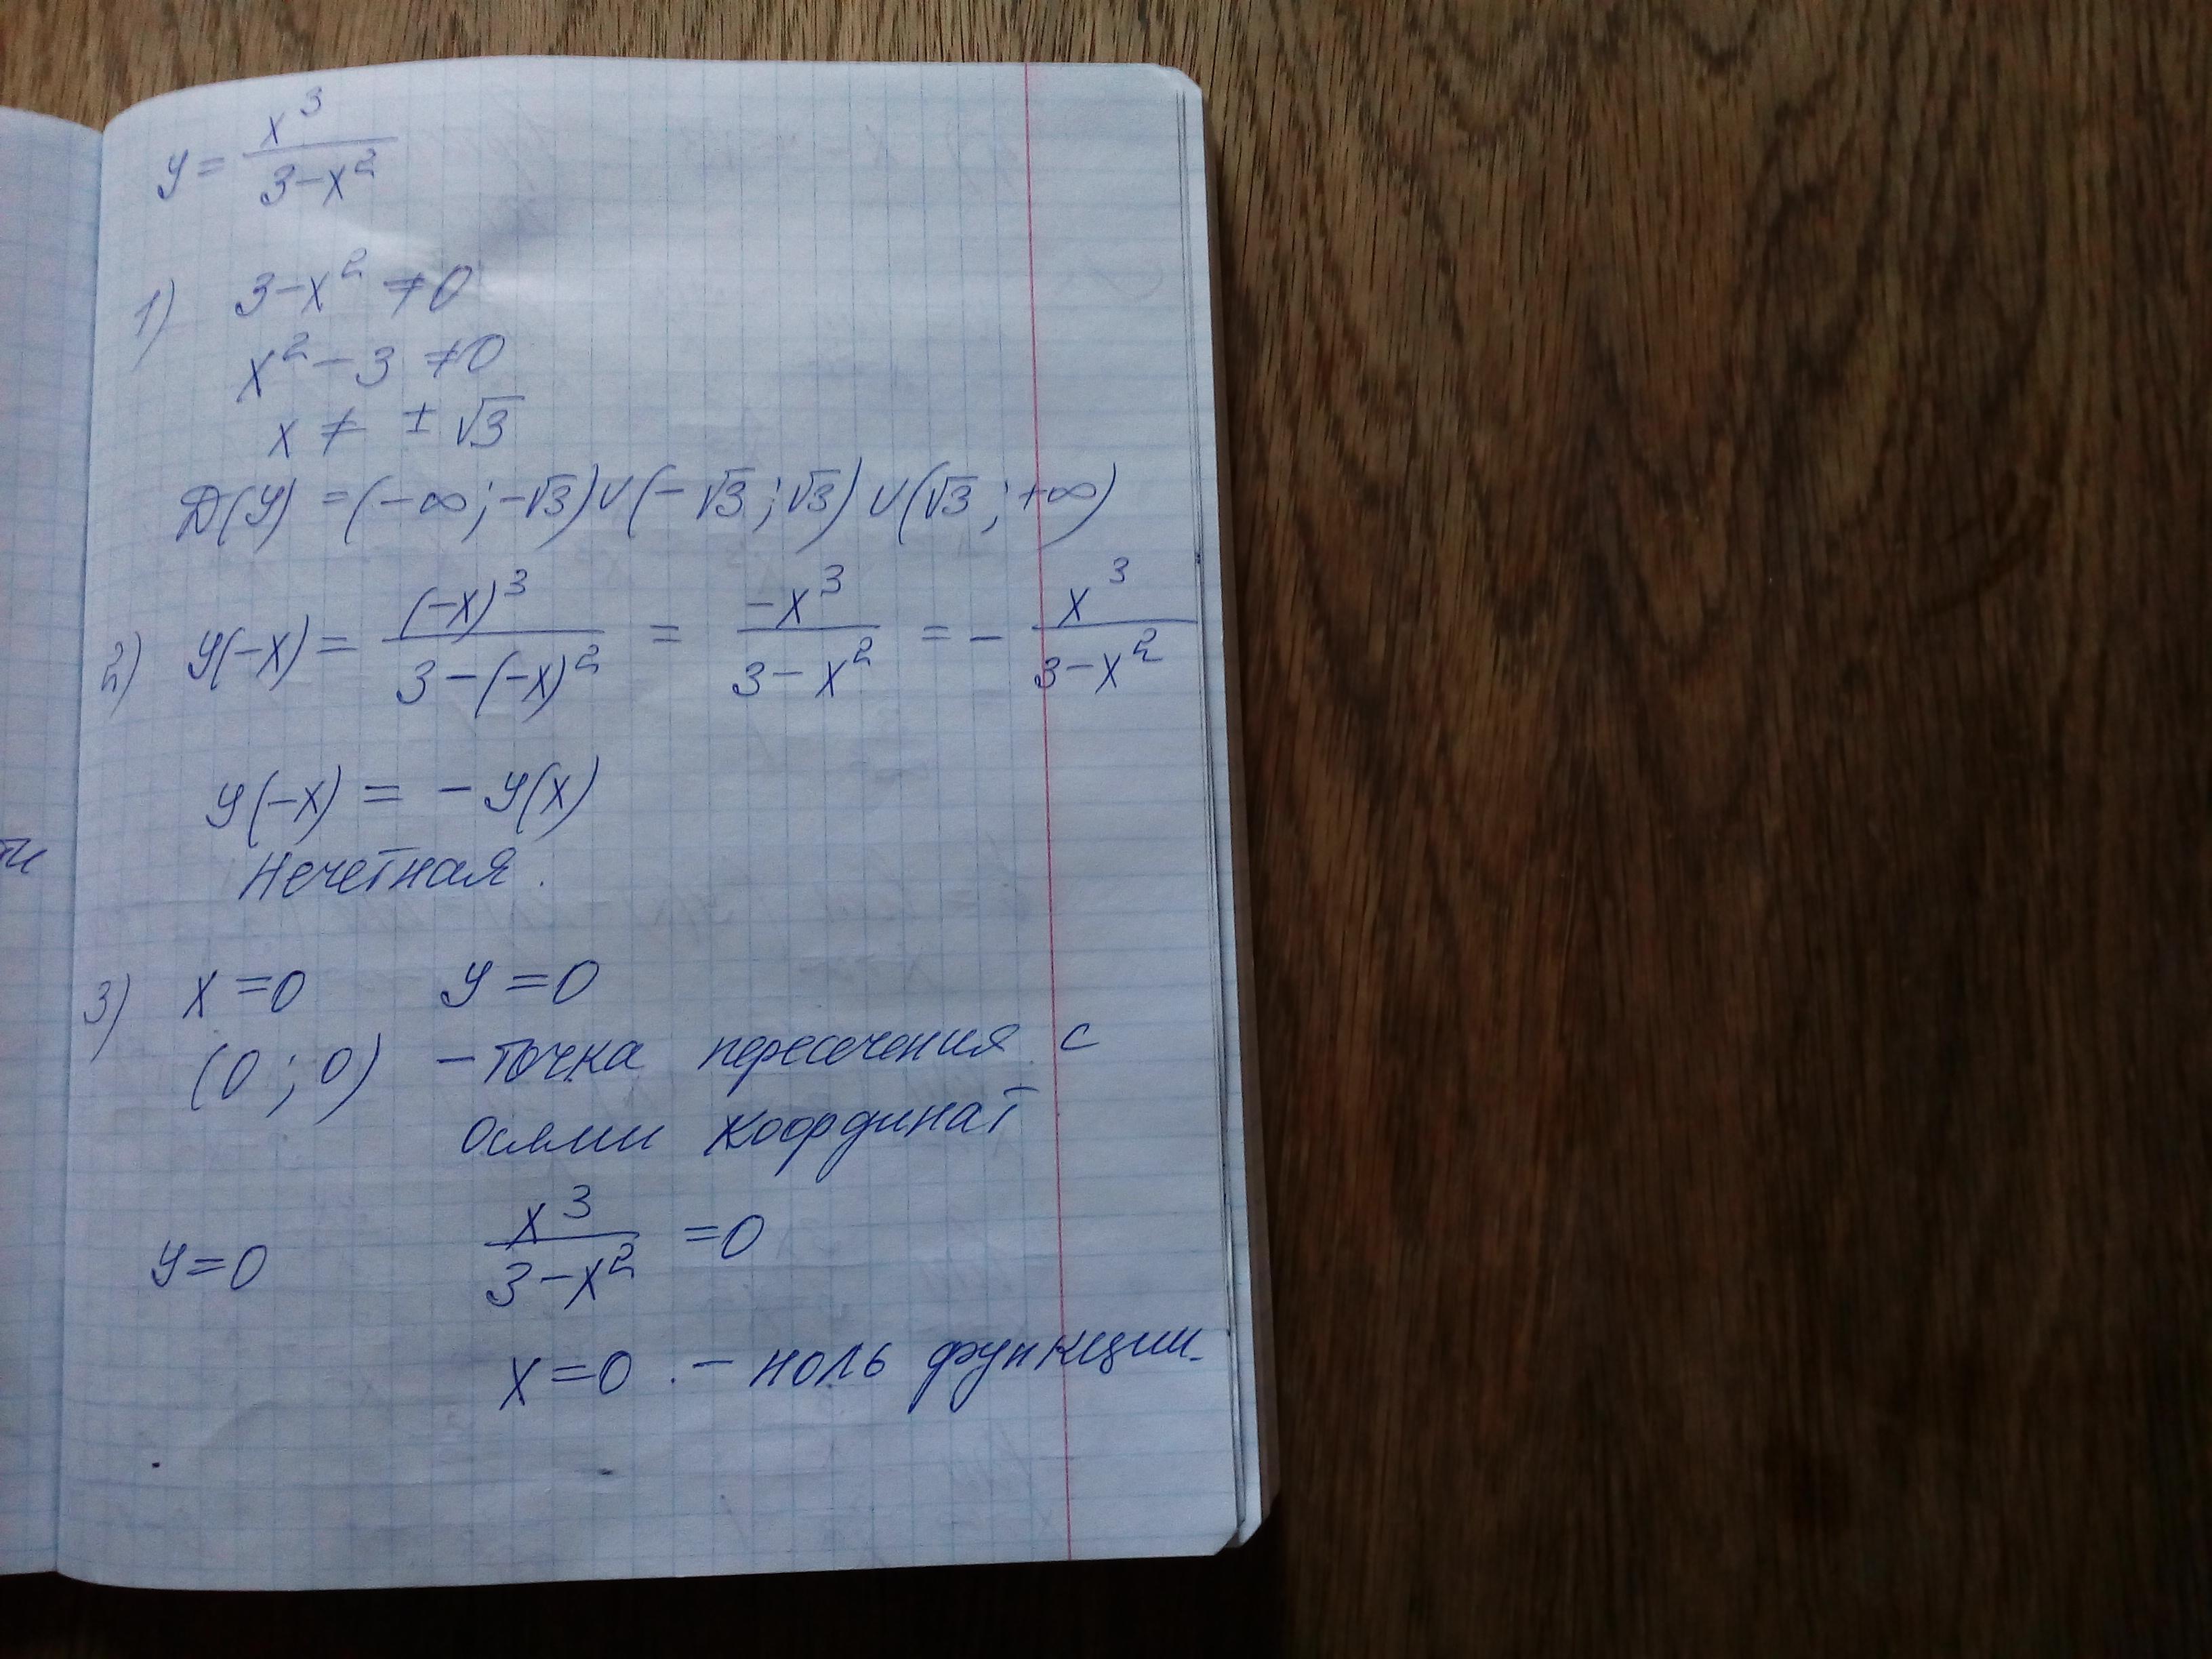 y = x³/(3-x²)
1) 3-x² ≠0
x² - 3 ≠0
x ≠ ± √3
D(y) = (-∞; -√3) ∪ (-√3; √3) ∪ (√3; +∞)
2) y(-x) = (-x)³/(3-(-x)²) = -x³/(3-x²) = - x³/(3-x²)
y(-x) = - y(x)
Нечетная.
3) x =0 y =0
(0; 0) - точка пересечения с
осями координат
y=0 x³/(3-x²) =0
x=0. - ноль функции.